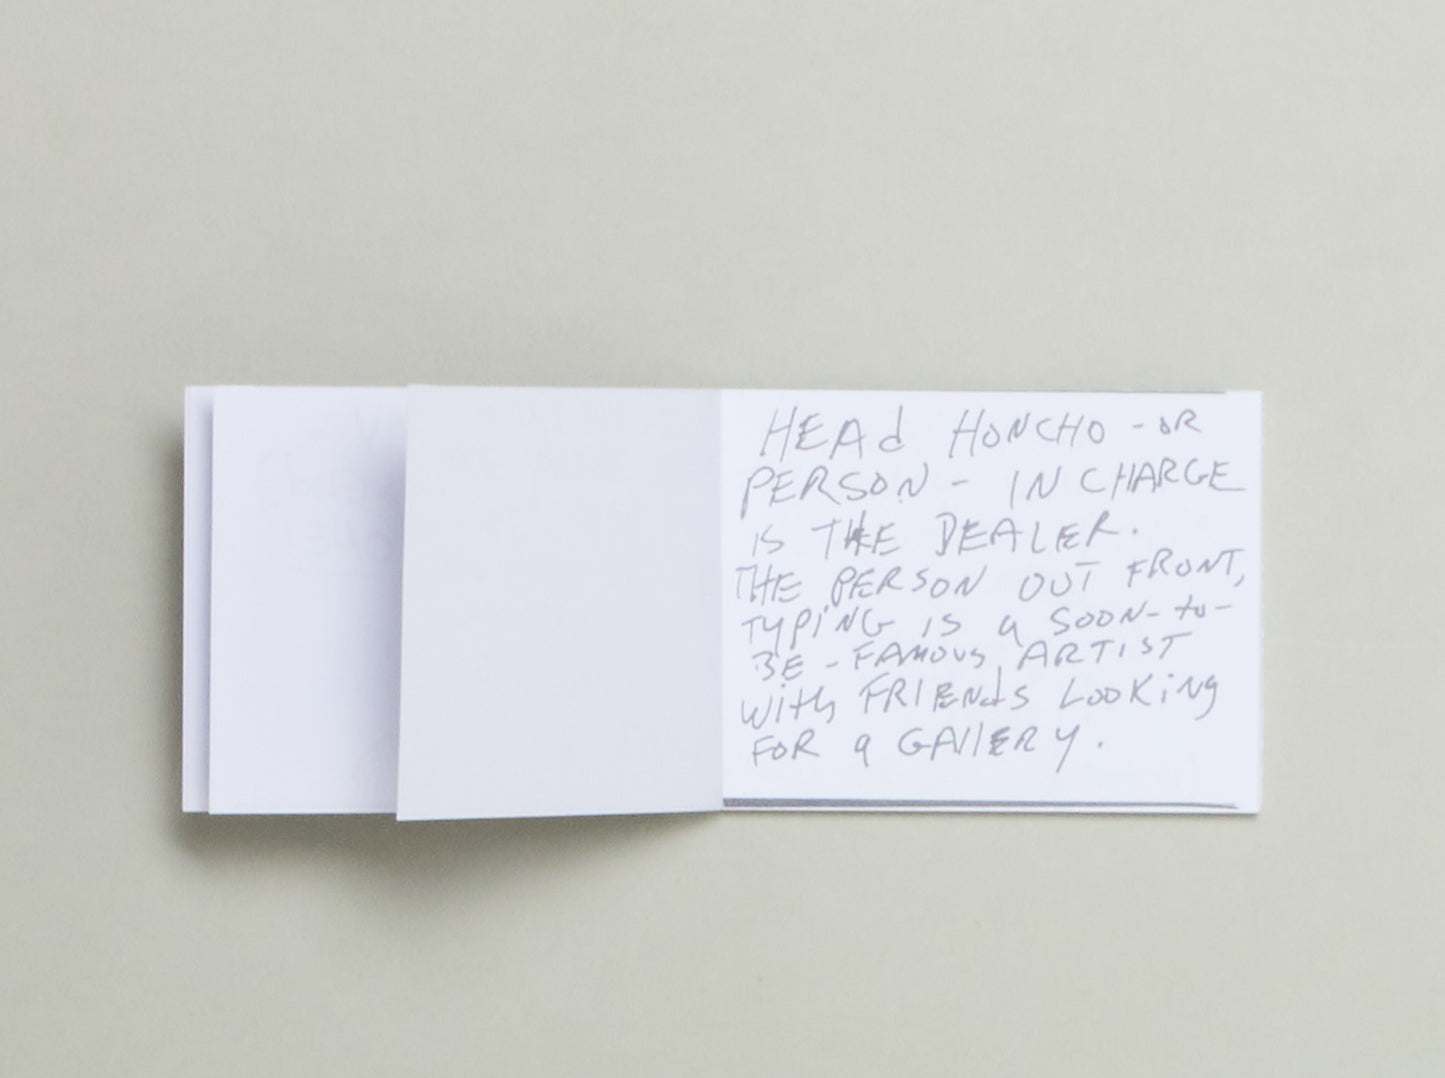 HEAd HONCHO - OR
PERSON - IN CHARGE
IS THE DEALER.
THE PERSON OUT FRONT,
TYPiNG IS a SOON-to-
BE - FAMOUS ARTIST
WITh FRIENdS LOOKiNg
FOR a GAllERY.